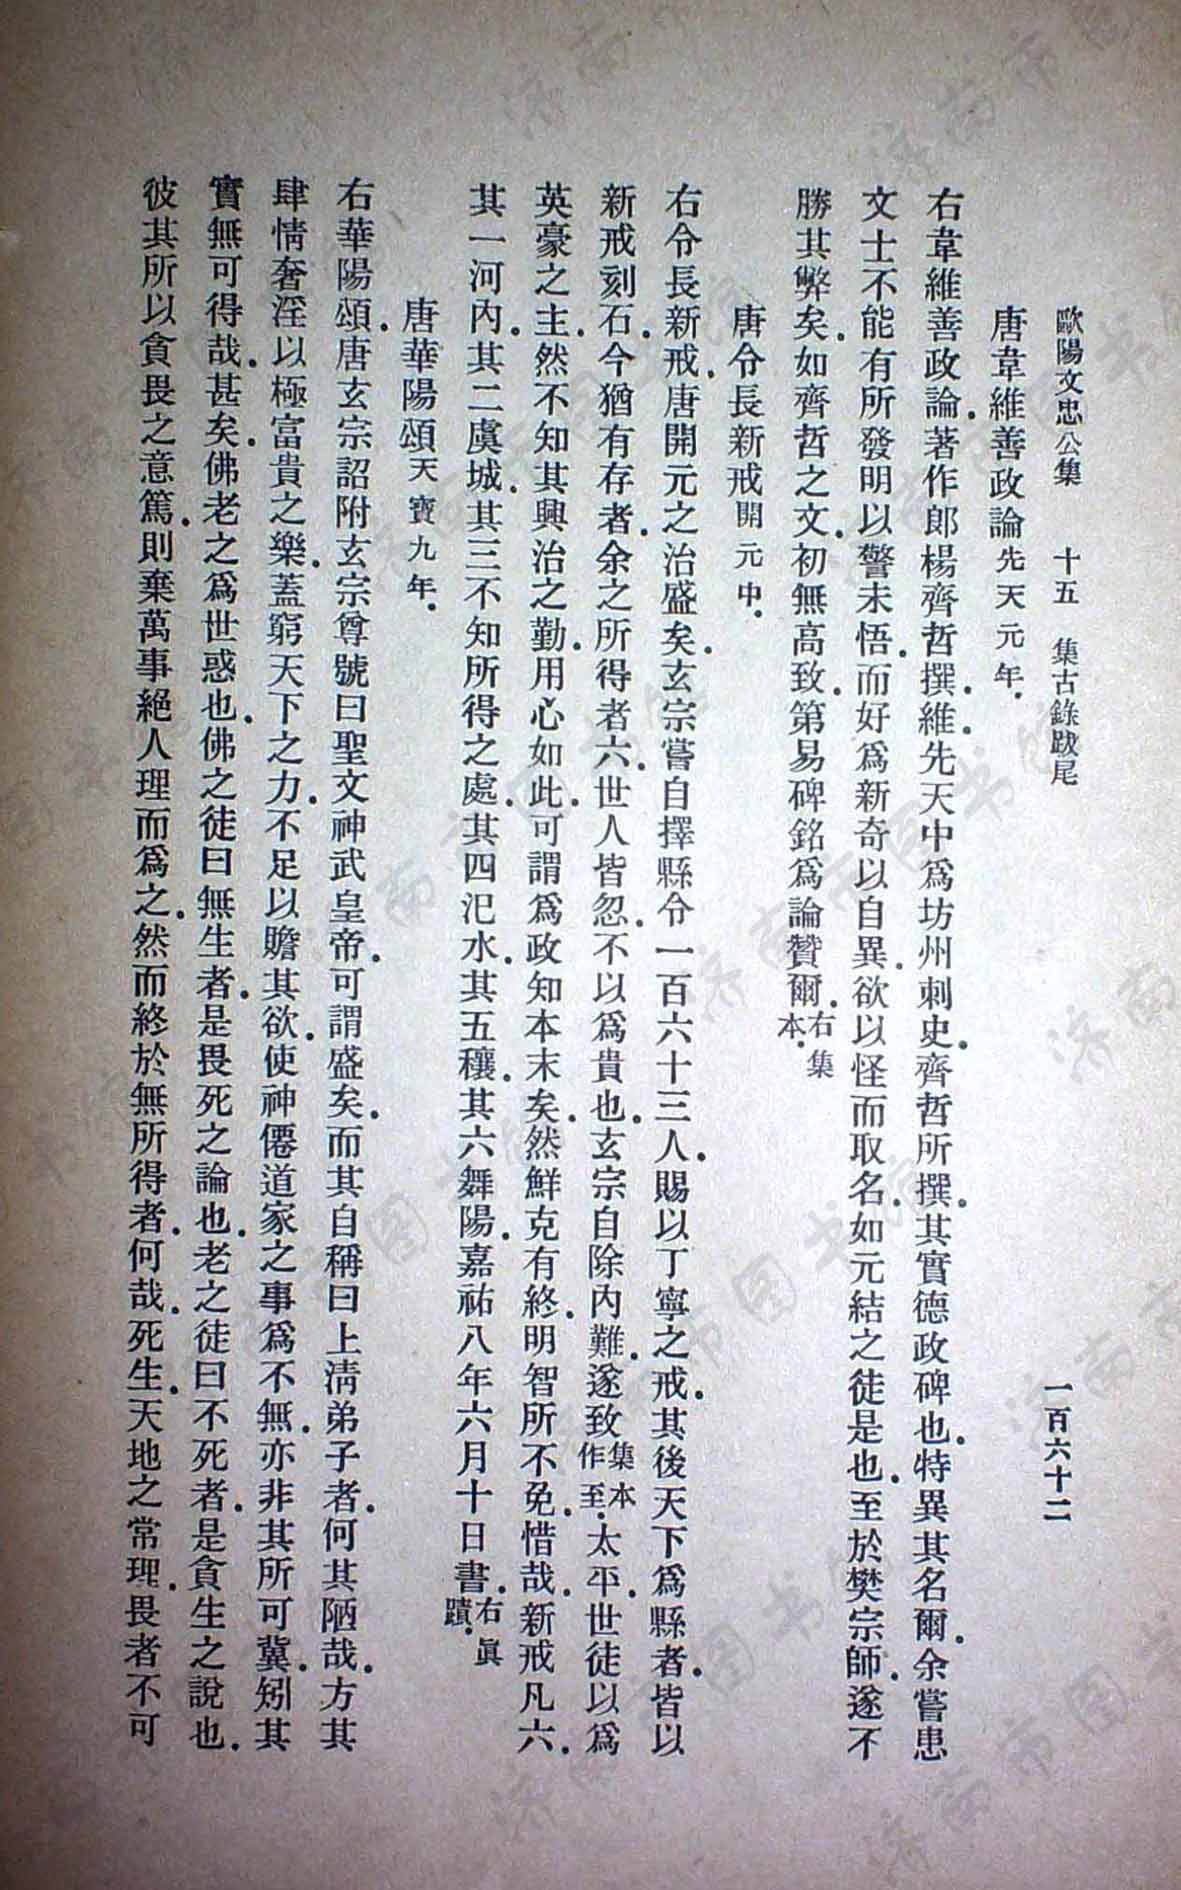 歐陽文忠公集　十五　集古錄跋尾　一百六十二
唐韋維善政論先天元年．
右韋維善政論．著作郎楊齊哲撰．維．先天中爲坊州刺史．齊哲所撰．其實德政碑也．特異其名爾．余嘗患
文士不能有所發明以警未悟．而好爲新奇以自異．欲以怪而取名．如元結之徒是也．至於樊宗師．遂不
勝其弊矣．如齊哲之文．初無高致．第易碑銘爲論贊爾．右集本．
唐令長新戒開元中．
右令長新戒．唐開元之治盛矣．玄宗嘗自擇縣令一百六十三人．賜以丁寧之戒．其後天下爲縣者．皆以
新戒刻石．今猶有存者．余之所得者六．世人皆忽．不以爲貴也．玄宗自除內難．遂致集本作至．太平．世徒以爲
英豪之主．然不知其興治之勤．用心如此．可謂爲政知本末矣．然鮮克有終．明智所不免．惜哉．新戒凡六．
其一河內．其二虞城．其三不知所得之處．其四汜水．其五穰．其六舞陽．嘉祐八年六月十日書．右眞蹟．
唐華陽頌天寶九年．
右華陽頌．唐玄宗詔附玄宗尊號曰聖文神武皇帝．可謂盛矣．而其自稱曰上淸弟子者．何其陋哉．方其
肆情奢淫以極富貴之樂．蓋窮天下之力．不足以贍其欲．使神僊道家之事爲不無．亦非其所可冀．矧其
實無可得哉．甚矣．佛老之爲世惑也．佛之徒曰無生者．是畏死之論也．老之徒曰不死者．是貪生之說也．
彼其所以貪畏之意篤．則棄萬事絕人理而爲之．然而終於無所得者．何哉．死生．天地之常理．畏者不可
济南市图书馆